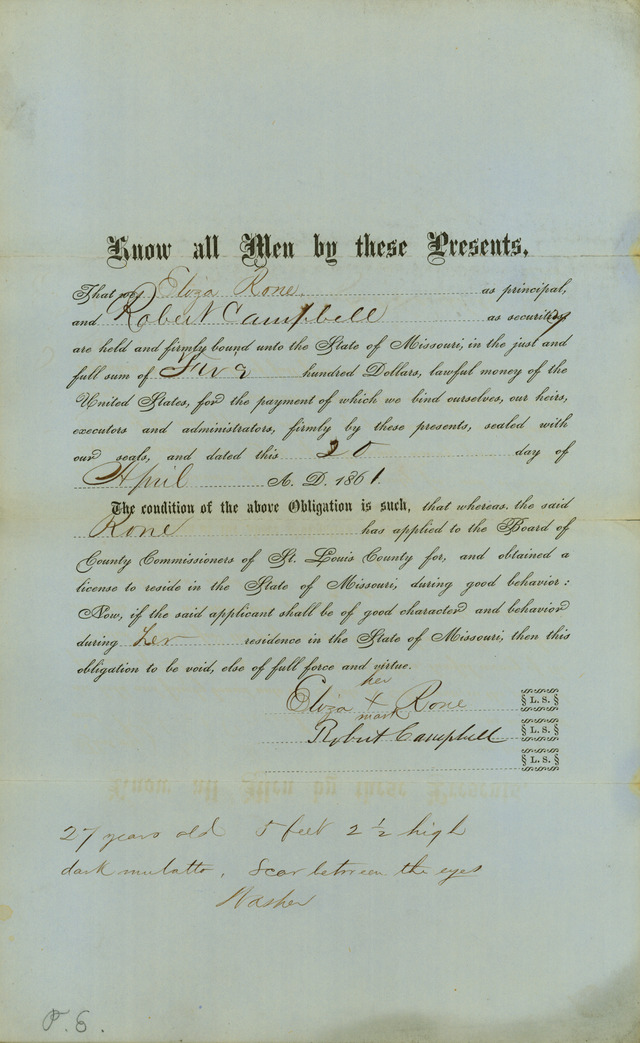 Know all Men by these Presents,
That we, Eliza Rone, as principal,
and Robert Campbell as security
are held and firmly bound unto the State of Missouri, in the just and
full sum of Five hundred Dollars, lawful money of the
United States, for the payment of which we bind ourselves, our heirs,
executors and administrators, firmly by these presents, sealed with
our seals, and dated this 20 day of
April A. D. 1861.
The condition of the above Obligation is such, that whereas the said
Rone has applied to the Board of
County Commissioners of St. Louis County for, and obtained a
license to reside in the State of Missouri, during good behavior:
Now, if the said applicant shall be of good character and behavior
during her residence in the State of Missouri, then this
obligation to be void, else of full force and virtue.
her
Eliza X Rone L. S.
mark
Robert Campbell L. S.
L. S.
27 years old 5 feet 2 ½ high
dark mulatto, Scar between the eyes
Washer